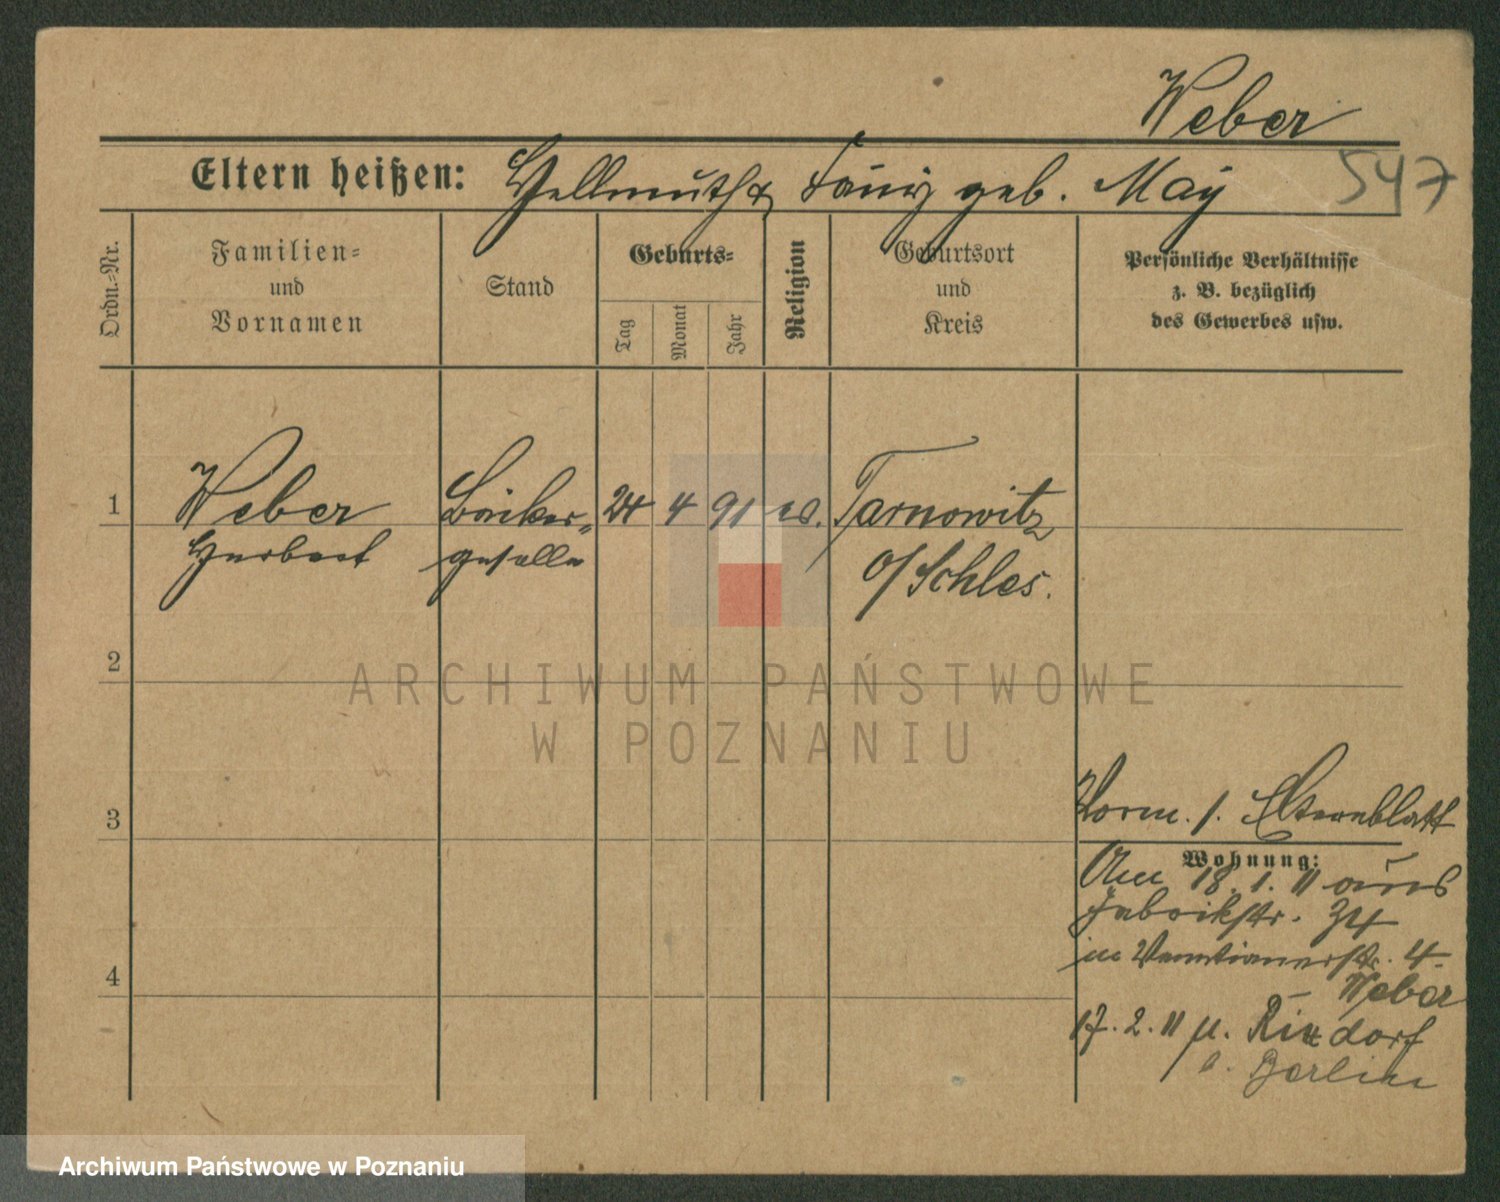 Weber
547
Eltern heißen: Hellmuth & Fanny geb. May
Ordn.-Nr.
Familien-
und
Vornamen
Stand
Geburts-
Tag
Monat
Jahr
Religion
Geburtsort
und
Kreis
Persönliche Verhältnisse
z. B. bezüglich
des Gewerbes usw.
1
Weber
Herbert
Bäcker-
geselle
24 4 91 ev.
Tarnowitz
O/Schles.
2
ARCHIWUM PAŃSTWOWE
W POZNANIU
3
Vorm. s. Elternblatt
Wohnung:
Am 18.1.11 aus
Fabrikstr. 34
in Venetianerstr. 4.
Weber
4
17.2.11 n. Rixdorf
b. Berlin
Archiwum Państwowe w Poznaniu